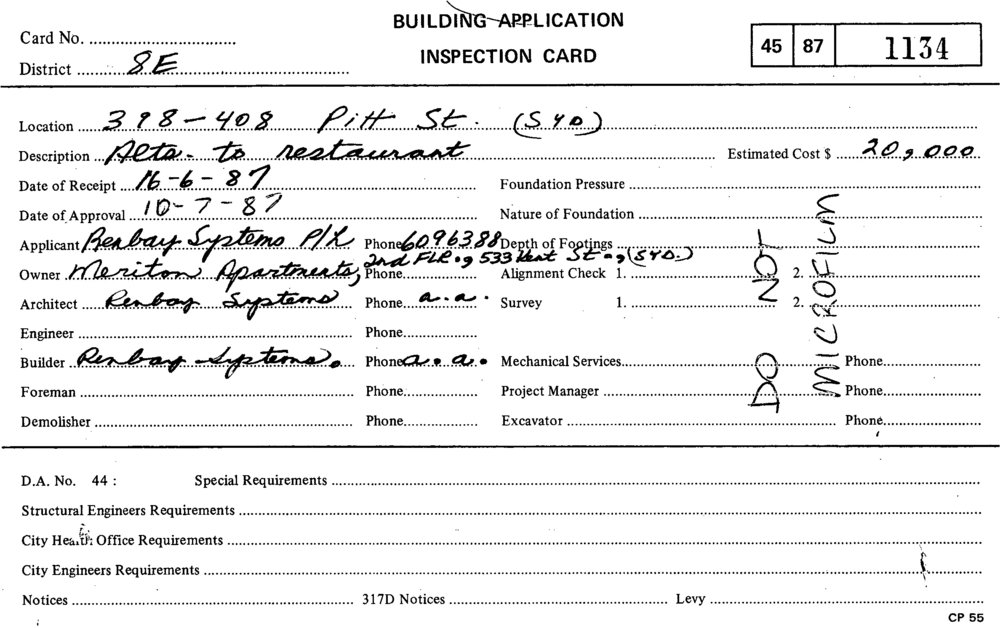 BUILDING APPLICATION
INSPECTION CARD
Card No.
District 8E
45 87 1134
Location 398-408 Pitt St. (SYD)
Description Alts. to restaurant Estimated Cost $ 20,000
Date of Receipt 16-6-87 Foundation Pressure
Date of Approval 10-7-87 Nature of Foundation
Applicant Renbay Systems P/L Phone 6096388 Depth of Footings
Owner Meriton Apartments, 2nd FLR., 533 Kent St., (SYD.) Phone Alignment Check 1. 2.
Architect Renbay Systems Phone a.a. Survey 1. 2.
Engineer Phone
Builder Renbay Systems. Phone a.a. Mechanical Services Phone
Foreman Phone Project Manager Phone
Demolisher Phone Excavator Phone
DO NOT
MICROFILM
D.A. No. 44 : Special Requirements
Structural Engineers Requirements
City Health Office Requirements
City Engineers Requirements
Notices 317D Notices Levy
CP 55